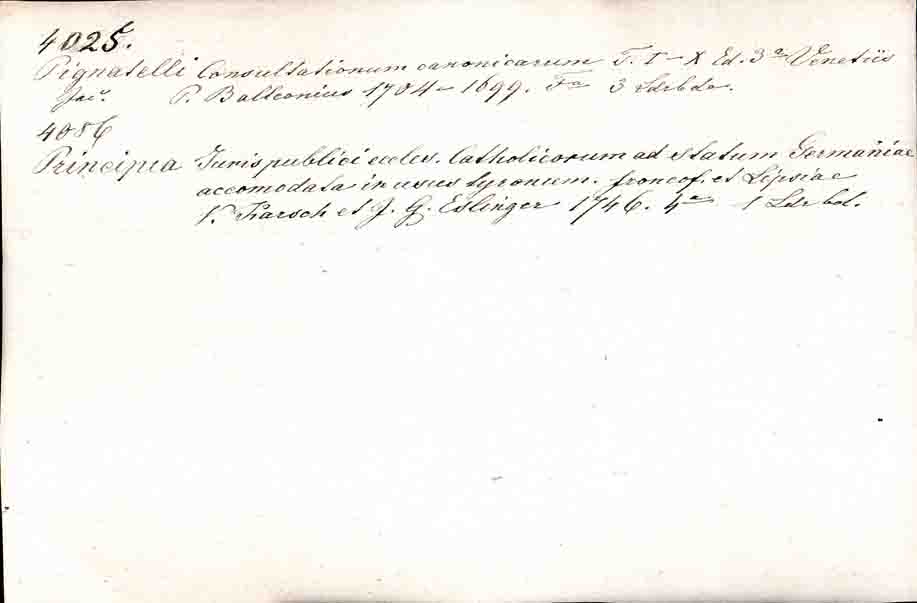 4025.
Pignatelli Consultationum canonicarum T. I – X Ed. 3ª Venetiis
Jac. P. Balleonius 1704 – 1699. Fº 3 Ldrbde.
4086
Principia Juris publici eccles. Catholicorum ad statum Germaniae
accomodata in usus tyronum. francof. et Lipsiae
Karsch et J. G. Eslinger 1746. 4º 1 Ldrbd.